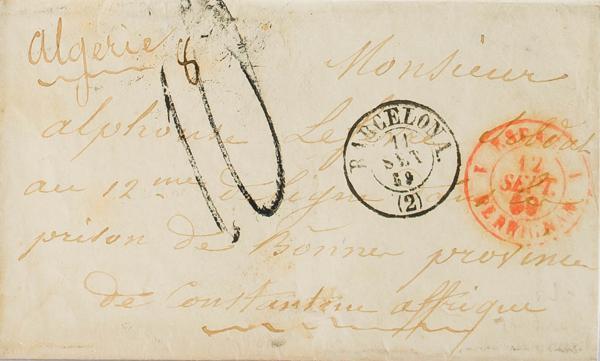 algerie
8
10
Monsieur
alphonse
au 12 me de ligne
prison de Bônne province
de Constantine affrique
BARCELONA
11
SET
59
(2)
ESPAGNE
12
SEPT.
59
PERPIGNAN